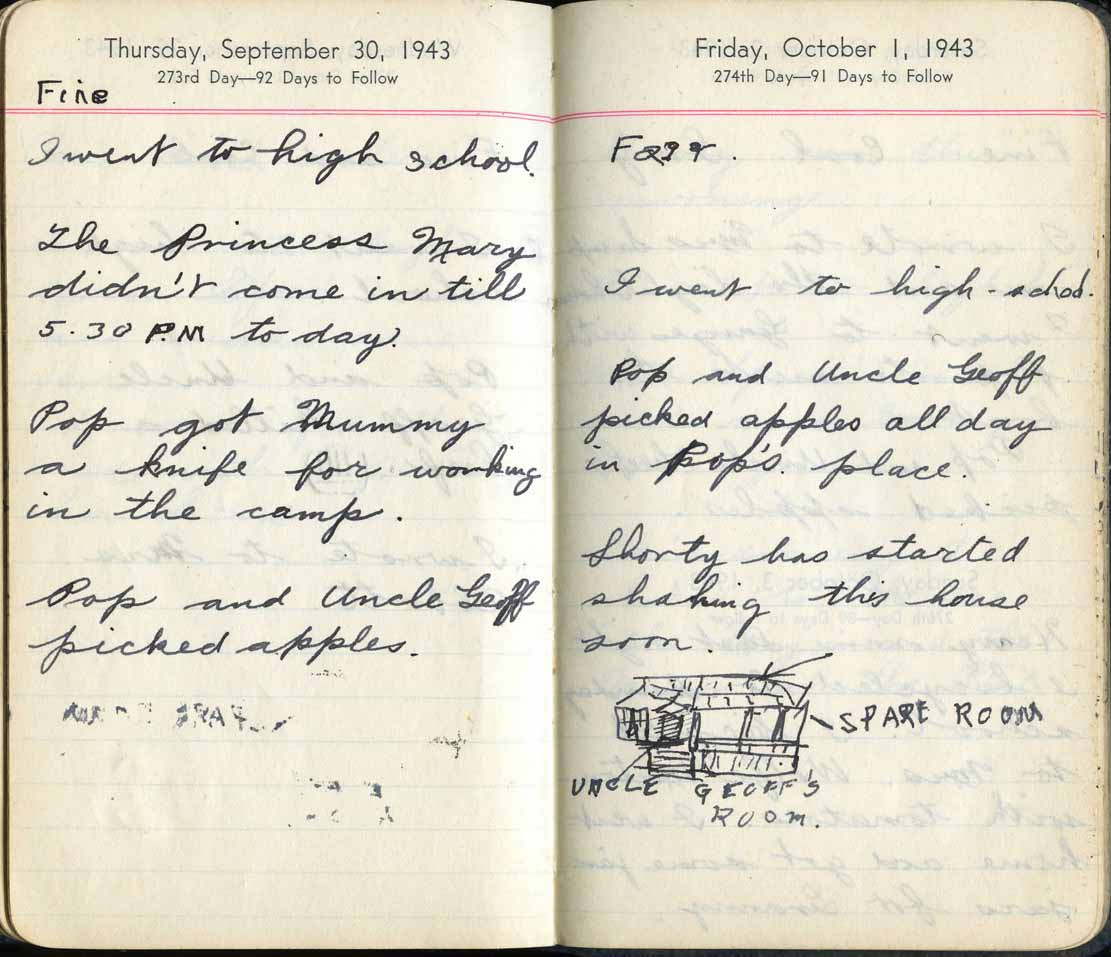 Thursday, September 30, 1943
273rd Day—92 Days to Follow
Fine
I went to high school.
The Princess Mary
didn't come in till
5.30 P.M to day.
Pop got Mummy
a knife for working
in the camp.
Pop and Uncle Geoff
picked apples.
Friday, October 1, 1943
274th Day—91 Days to Follow
Fair.
I went to high-school.
Pop and Uncle Geoff
picked apples all day
in Pop's place.
Shorty has started
shaking this house
soon.
SPARE ROOM
UNCLE GEOFF'S
ROOM.